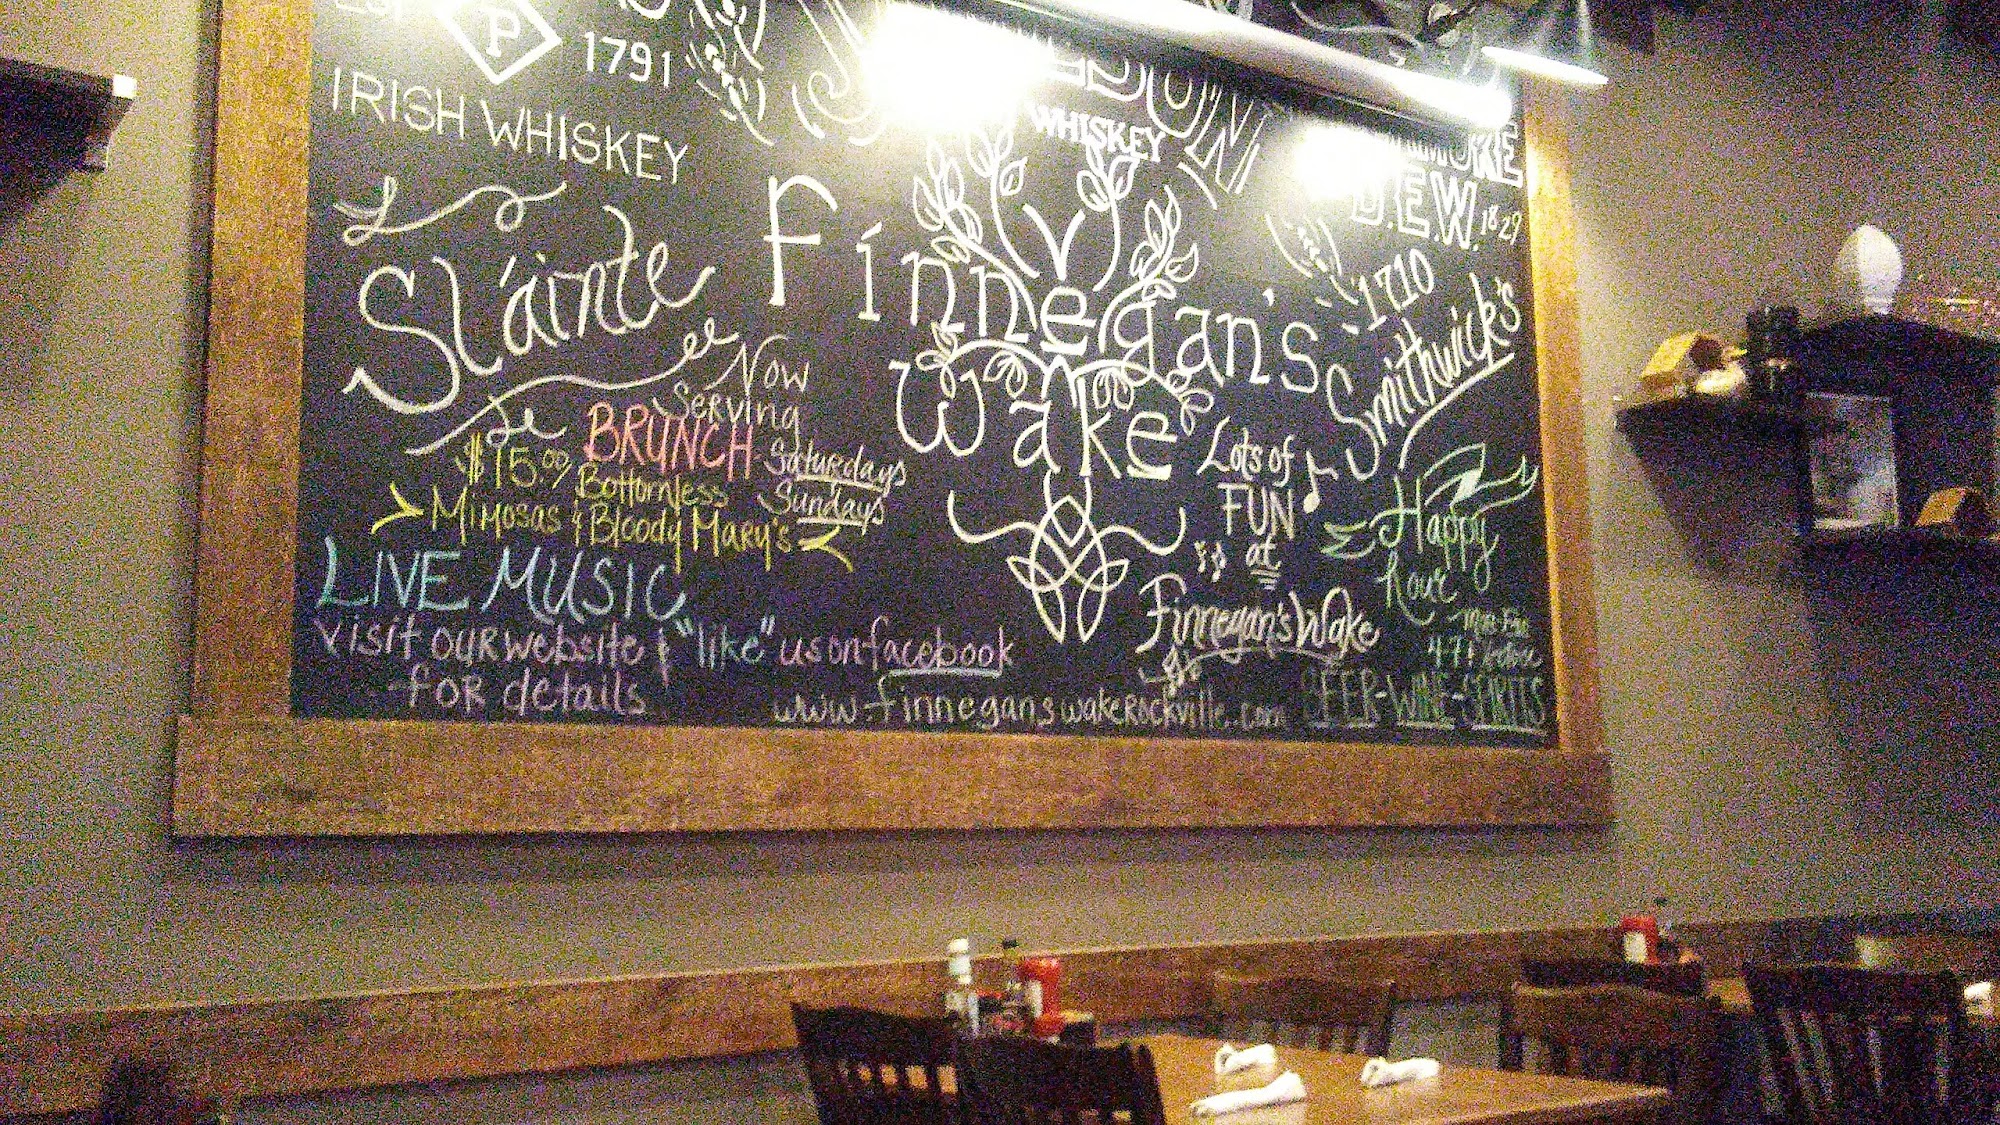 P
1791
IRISH WHISKEY
WHISKEY
D.E.W. 1827
Sláinte
Finnegan's
Wake
1710
Smithwick's
Now
Serving
BRUNCH Saturdays
Sundays
$15.00/ Bottomless
Mimosas & Bloody Mary's
LIVE MUSIC
visit our website & "like" us on facebook
for details
www.finneganswakeRockville.com
Lots of
FUN
at
Finnegan's Wake
Happy
hour
4-7
BEER-WINE-SPIRITS